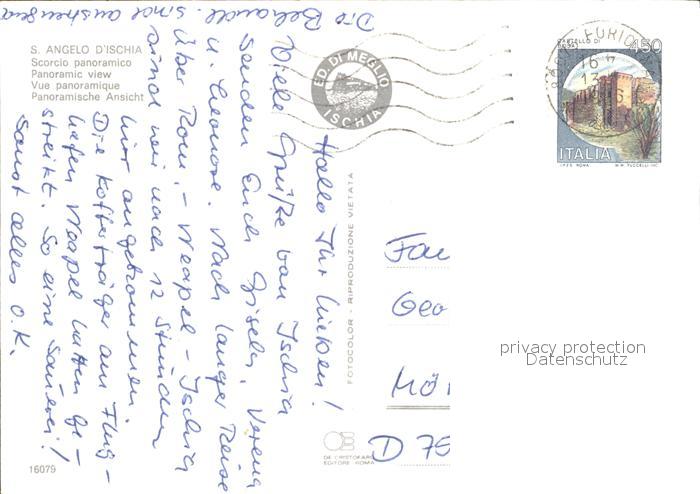 S. ANGELO D'ISCHIA
Scorcio panoramico
Panoramic view
Vue panoramique
Panoramische Ansicht
Hallo Ihr Lieben!
Viele Grüße von Ischia
senden Euch Gisela, Verena
u. Eleonore. Nach langer Reise
über Rom, - Neapel - Ischia
sind wir nach 12 Stunden
hier angekommen.
Die Kofferträger am Flug-
hafen Neapel hatten ge-
streikt. So eine Sauerei!
Sonst alles O.K.
Die Behandl. sind anstrengend
ED. DI MEGLIO
ISCHIA
FOTOCOLOR - RIPRODUZIONE VIETATA
DE CRISTOFARO
EDITORE ROMA
16079
CASTELLO DI
450
FORIO
16
13
ITALIA
I.P.Z.S. ROMA
M.M. TUCCELLI INC.
Fa
Geo
MÖ
D 75
privacy protection
Datenschutz